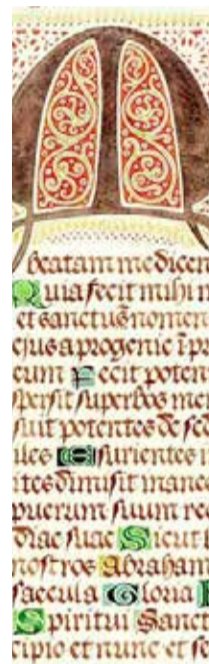 M
beatam me dicen
Quia fecit mihi m
et sanctū nomen
ejus a progenie ī pr
eum Fecit poten
spersit superbos men
suit potentes de sed
iles Esurientes
ites dimisit inane
puerum suum rec
diae suae Sicut l
nostros Abraham
saecula Gloria P
Spiritui Sanct
cipio et nunc et se